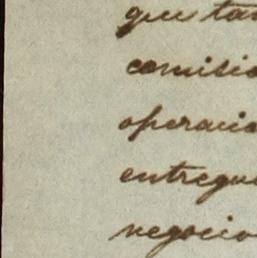 que tan
comisio
operacio
entregue
negocio